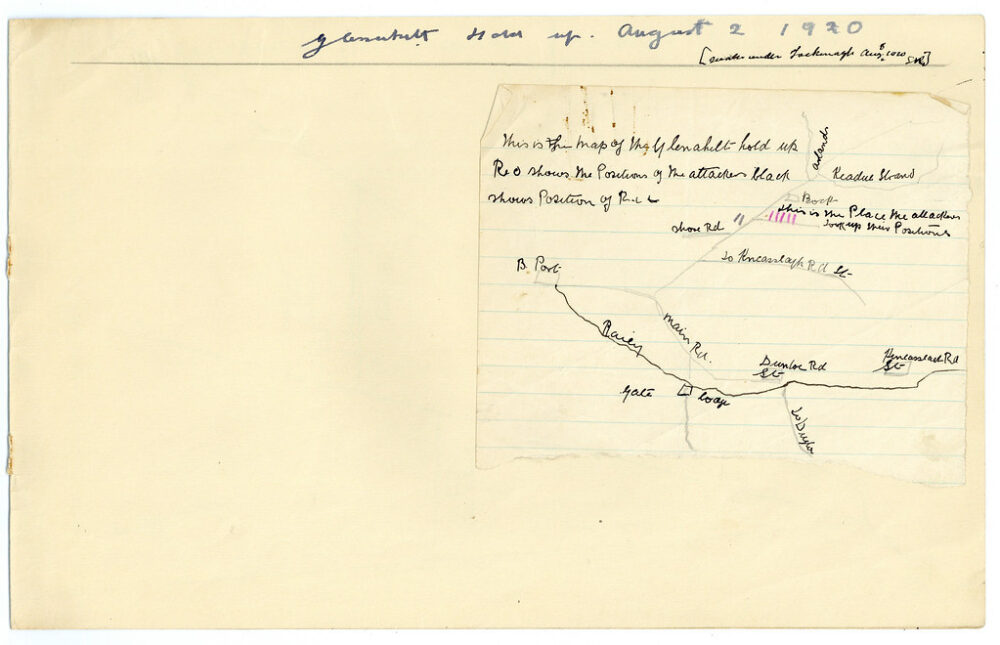 Glenahilt Hold up. August 2 1920
[ under Aug 1920
This is the map of the Glenahilt hold up
Red shows the Positions of the attackers black
shows Position of R.I.C
Islands
Keadue Strand
Rock
this is the Place the attackers
took up their Positions
shore Rd
to Kincasslagh Rd St
B. Port
Railey
main Rd.
Dunloe Rd
St
Kincasslach Rd
St
Gate
Loop
To Dunglo